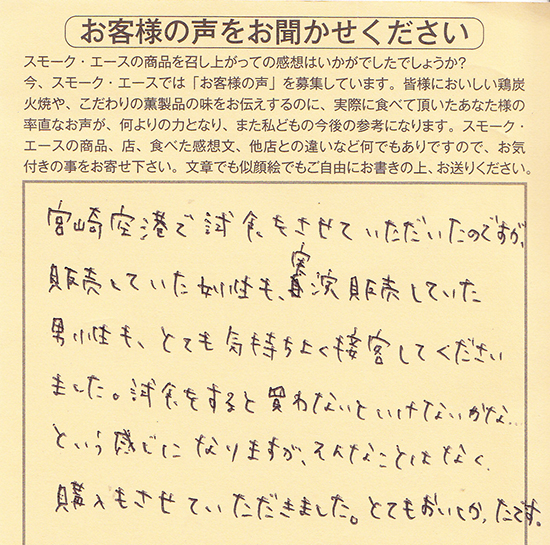 お客様の声をお聞かせください
スモーク・エースの商品を召し上がっての感想はいかがでしたでしょうか?
今、スモーク・エースでは「お客様の声」を募集しています。皆様においしい鶏炭
火焼や、こだわりの薫製品の味をお伝えするのに、実際に食べて頂いたあなた様の
率直なお声が、何よりの力となり、また私どもの今後の参考になります。スモーク・
エースの商品、店、食べた感想文、他店との違いなど何でもありですので、お気
付きの事をお寄せ下さい。文章でも似顔絵でもご自由にお書きの上、お送りください。
宮崎空港で試食をさせていただいたのですが、
販売していた女性も、実演販売していた
男性も、とても気持ちよく接客してください
ました。試食をすると買わないといけないかな…
という感じになりますが、そんなことはなく、
購入もさせていただきました。とてもおいしかったです。